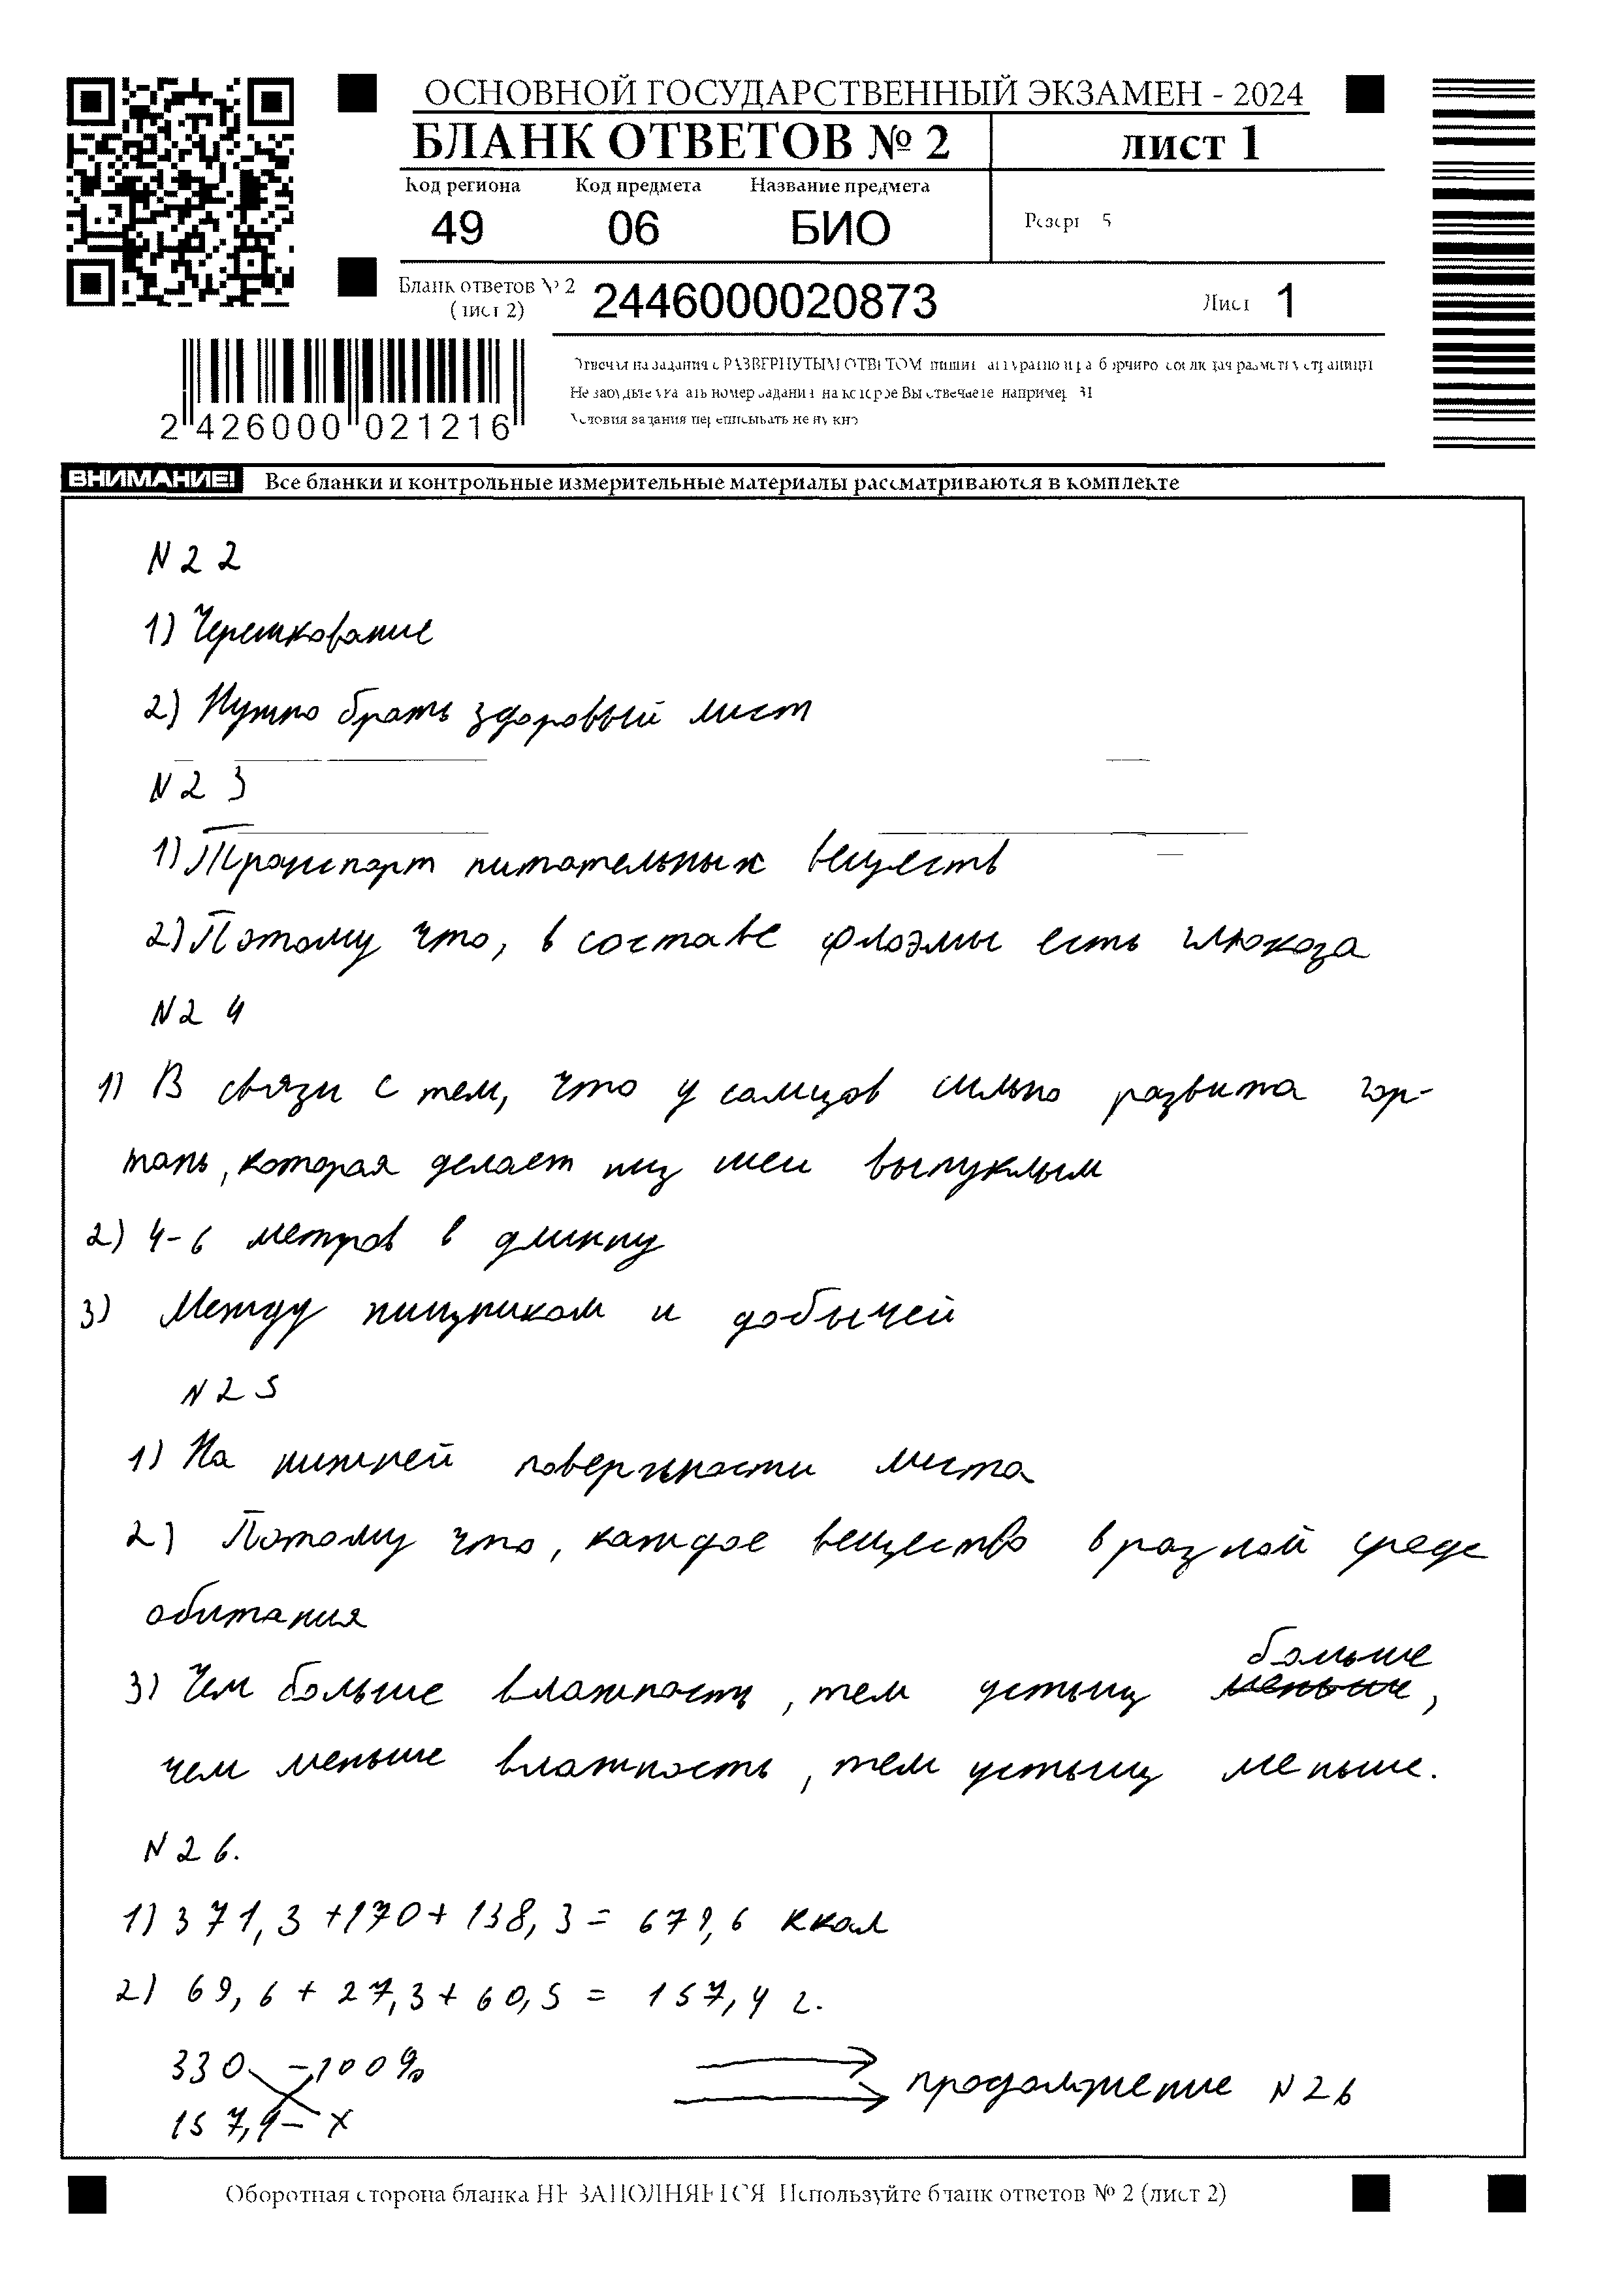 ОСНОВНОЙ ГОСУДАРСТВЕННЫЙ ЭКЗАМЕН - 2024
БЛАНК ОТВЕТОВ № 2
лист 1
Код региона Код предмета Название предмета
49 06 БИО
Резерв 5
Бланк ответов № 2
(лист 2)
2446000020873
Лист 1
2 426000 021216
Отвечая на задания с РАЗВЕРНУТЫМ ОТВЕТОМ, пишите аккуратно и разборчиво, соблюдая разметку страницы
Не забудьте указать номер задания, на которое Вы отвечаете, например, 31
Условия задания переписывать не нужно
ВНИМАНИЕ! Все бланки и контрольные измерительные материалы рассматриваются в комплекте
N 22
1) Черенкование
2) Нужно брать здоровый лист
N 23
1) Транспорт питательных веществ
2) Потому что, в составе флоэмы есть глюкоза
N 24
1) В связи с тем, что у самцов сильно развита гор-
тань, которая делает низ шеи выпуклым
2) 4-6 метров в длинну
3) Между хищником и добычей
N 25
1) На нижней поверхности листа
2) Потому что, каждое вещество в разной среде
обитания
больше
3) Чем больше влажность, тем устьиц меньше,
чем меньше влажность, тем устьиц меньше.
N 26.
1) 371,3 + 170 + 138,3 = 679,6 ккал
2) 69,6 + 27,3 + 60,5 = 157,4 г.
330 - 100%
157,4 - x
продолжение N 26
Оборотная сторона бланка НЕ ЗАПОЛНЯЕТСЯ. Используйте бланк ответов № 2 (лист 2)